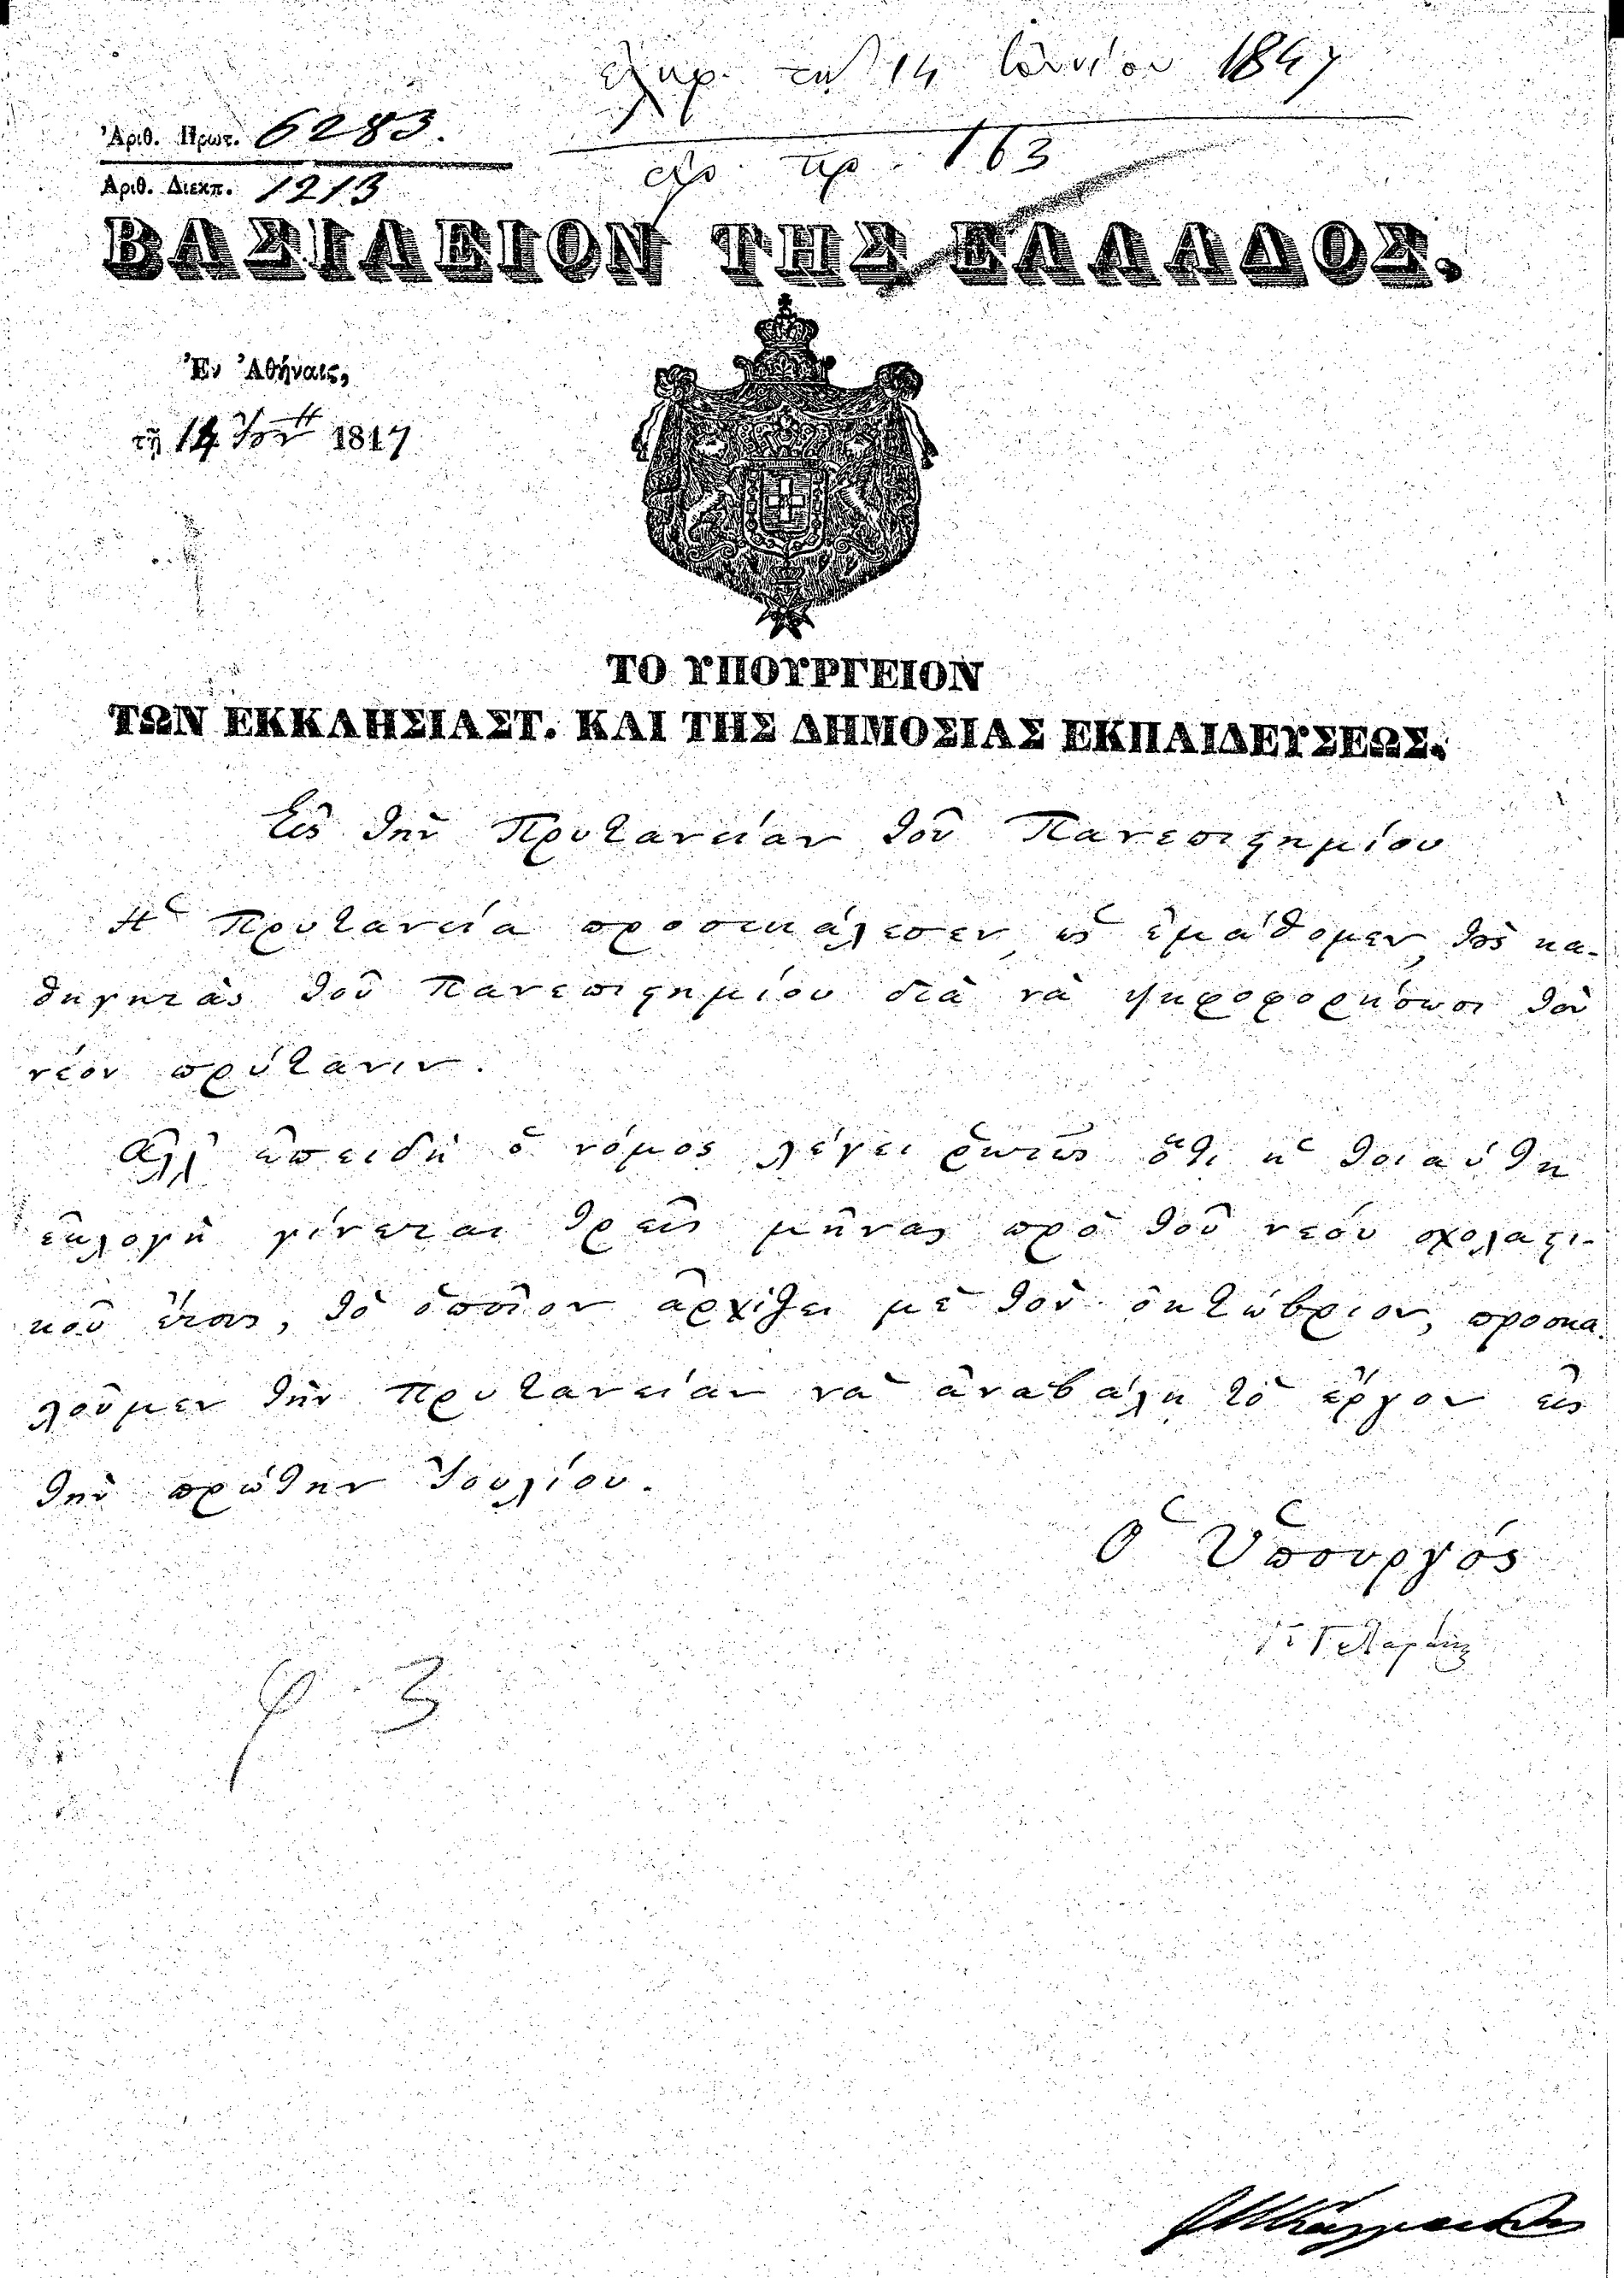 ἐλήφ. τῇ 14 Ἰουνίου 1847
ἀρ. πρ. 163
Ἀριθ. Πρωτ. 6283.
Ἀριθ. Διεκπ. 1213
ΒΑΣΙΛΕΙΟΝ ΤΗΣ ΕΛΛΑΔΟΣ.
Ἐν Ἀθήναις,
τῇ 14 Ἰουν 1847
ΤΟ ΥΠΟΥΡΓΕΙΟΝ
ΤΩΝ ΕΚΚΛΗΣΙΑΣΤ. ΚΑΙ ΤΗΣ ΔΗΜΟΣΙΑΣ ΕΚΠΑΙΔΕΥΣΕΩΣ.
Εἰς τὴν Πρυτανείαν τοῦ Πανεπιςημίου
Ἡ Πρυτανεία προσεκάλεσεν, ὡς ἐμάθομεν, τοὺς κα-
θηγητὰς τοῦ Πανεπιςημίου διὰ νὰ ψηφοφορήσωσι τὸν
νέον πρύτανιν.
Ἀλλ' ἐπειδὴ ὁ νόμος λέγει ῥητῶς ὅτι ἡ τοιαύτη
ἐκλογὴ γίνεται τρεῖς μῆνας πρὸ τοῦ νέου σχολαςι-
κοῦ ἔτους, τὸ ὁποῖον ἀρχίζει μὲ τὸν ὀκτώβριον, προσκα-
λοῦμεν τὴν Πρυτανείαν νὰ ἀναβάλῃ τὸ ἔργον εἰς
τὴν πρώτην Ἰουλίου.
Ὁ Ὑπουργός
φ 3